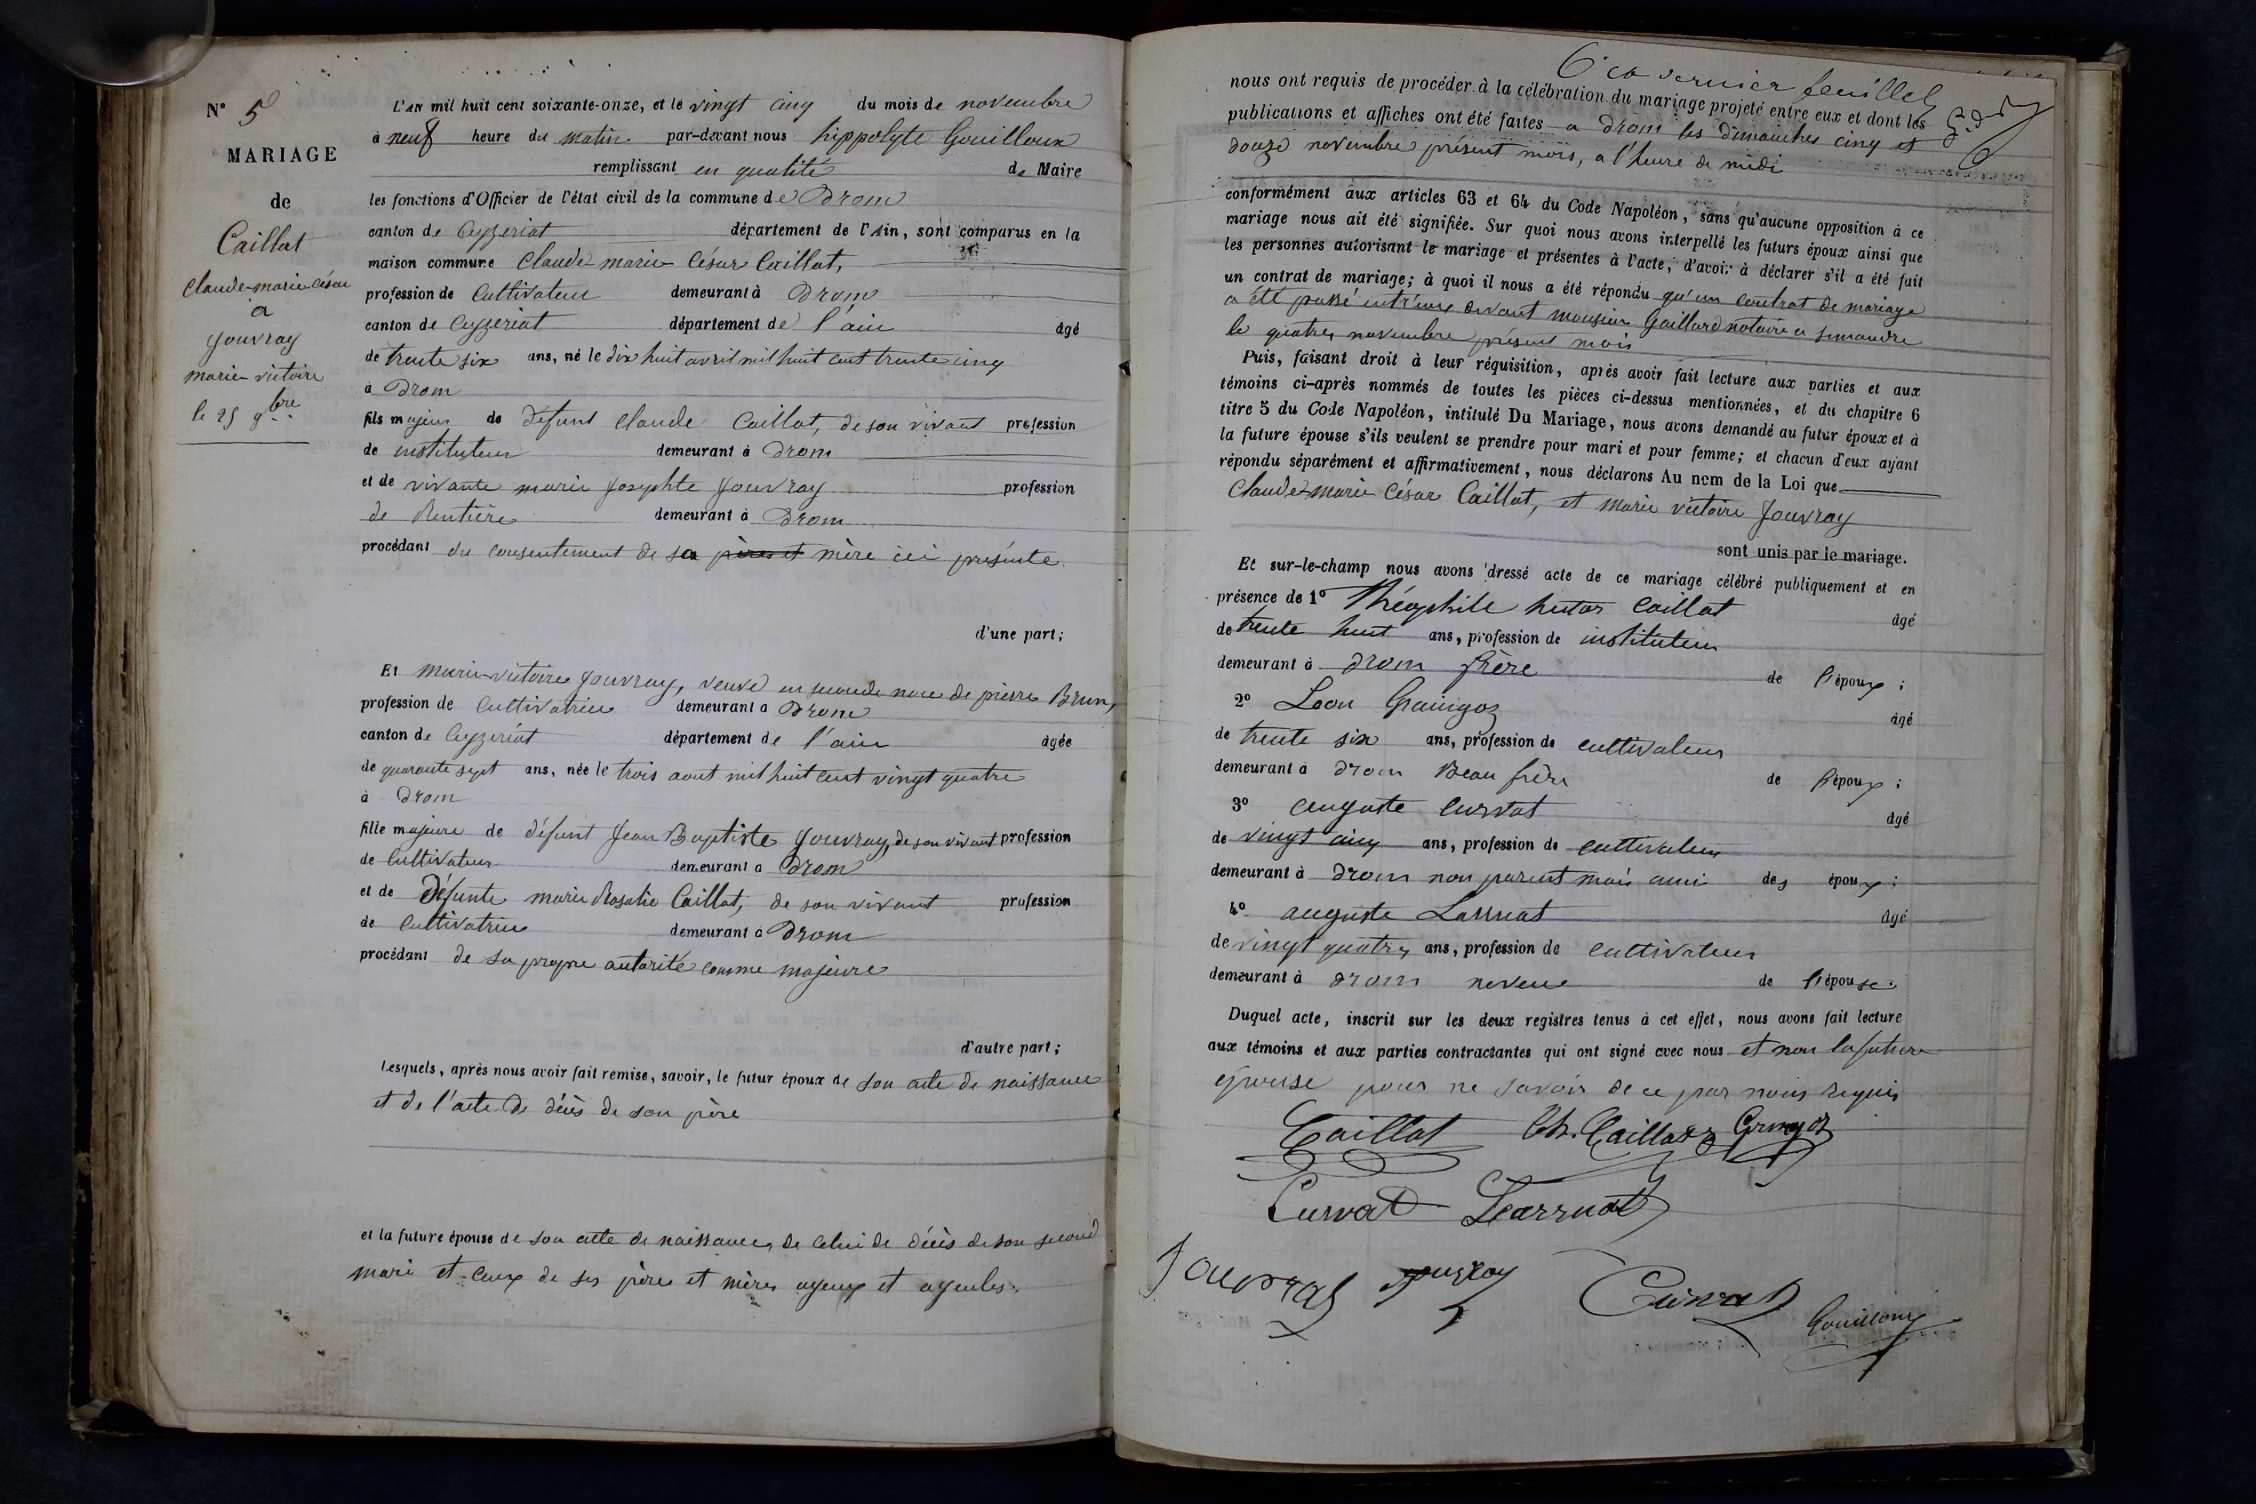 N° 5
MARIAGE
de
Caillat
Claude-marie César
a
Jouvray
marie victoire
le 25 9bre
L'AN mil huit cent soixante-onze, et le vingt cinq du mois de novembre
à neuf heure du matin par-devant nous hippolyte Gouilloux
remplissant en qualité de Maire
les fonctions d'Officier de l'état civil de la commune de Drom
canton de Ceyzeriat département de l'Ain, sont comparus en la
maison commune Claude marie César Caillat,
profession de Cultivateur demeurant à Drom
canton de Ceyzeriat département de l'ain âgé
de trente six ans, né le dix huit avril mil huit cent trente cinq
à Drom
fils majeur de défunt Claude Caillat, de son vivant profession
de instituteur demeurant à Drom
et de vivante marie Josephte Jouvray profession
de Rentière demeurant à Drom
procédant du consentement de sa père et mère ici présente
d'une part;
Et marie-victoire Jouvray, veuve en seconde noce de pierre Brun,
profession de Cultivatrice demeurant a Drom
canton de Ceyzeriat département de l'ain âgée
de quarante sept ans, née le trois aout mil huit cent vingt quatre
à Drom
fille majeure de défunt Jean Baptiste Jouvray, de son vivant profession
de Cultivateur demeurant a Drom
et de Défunte marie Rosalie Caillat, de son vivant profession
de Cultivatrice demeurant à Drom
procédant de sa propre autorité comme majeure
d'autre part;
Lesquels, après nous avoir fait remise, savoir, le futur époux de son acte de naissance
et de l'acte de décès de son père
et la future épouse de son acte de naissance, de celui de décès de son second
mari et ceux de ses père et mère ayeux et ayeules.
6e et dernier feuillet
nous ont requis de procéder à la célébration du mariage projeté entre eux et dont les
publications et affiches ont été faites a Drom les dimanches cinq et
douze novembre présent mois, a l'heure de midi
conformément aux articles 63 et 64 du Code Napoléon, sans qu'aucune opposition à ce
mariage nous ait été signifiée. Sur quoi nous avons interpellé les futurs époux ainsi que
les personnes autorisant le mariage et présentes à l'acte, d'avoir à déclarer s'il a été fait
un contrat de mariage; à quoi il nous a été répondu qu'un contrat de mariage
a été passé entr'eux devant monsieur Gaillard notaire a simandre
le quatre novembre présent mois
Puis, faisant droit à leur réquisition, après avoir fait lecture aux parties et aux
témoins ci-après nommés de toutes les pièces ci-dessus mentionnées, et du chapitre 6
titre 5 du Code Napoléon, intitulé Du Mariage, nous avons demandé au futur époux et à
la future épouse s'ils veulent se prendre pour mari et pour femme; et chacun d'eux ayant
répondu séparément et affirmativement, nous déclarons Au nom de la Loi que
Claude marie César Caillat, et marie victoire Jouvray
sont unis par le mariage.
Et sur-le-champ nous avons dressé acte de ce mariage célébré publiquement et en
présence de 1° Théophile Caillat âgé
de trente huit ans, profession de instituteur
demeurant à Drom frère de l'époux;
2° Léon âgé
de trente six ans, profession de cultivateur
demeurant à Drom Beau frère de l'époux;
3° auguste Curvat âgé
de vingt cinq ans, profession de cultivateur
demeurant à Drom non parent mais ami des époux;
4° auguste Larruat âgé
de vingt quatre ans, profession de cultivateur
demeurant à Drom neveu de l'épouse.
Duquel acte, inscrit sur les deux registres tenus à cet effet, nous avons fait lecture
aux témoins et aux parties contractantes qui ont signé avec nous et non la future
épouse pour ne savoir de ce par nous requis
Caillat Th. Caillat
Curvat Larruat
Jouvray Jouvray Curvat Gouilloux